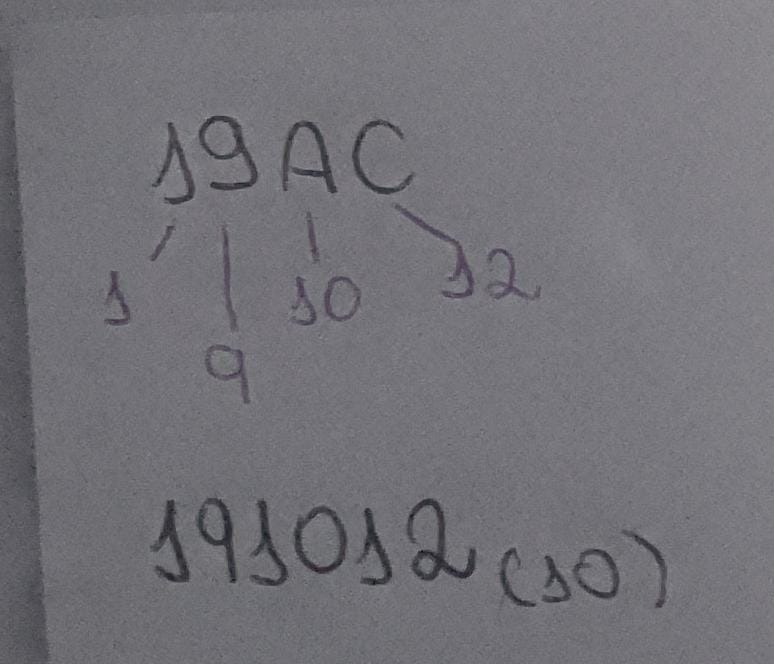 19AC
1 9 10 12
191012(10)